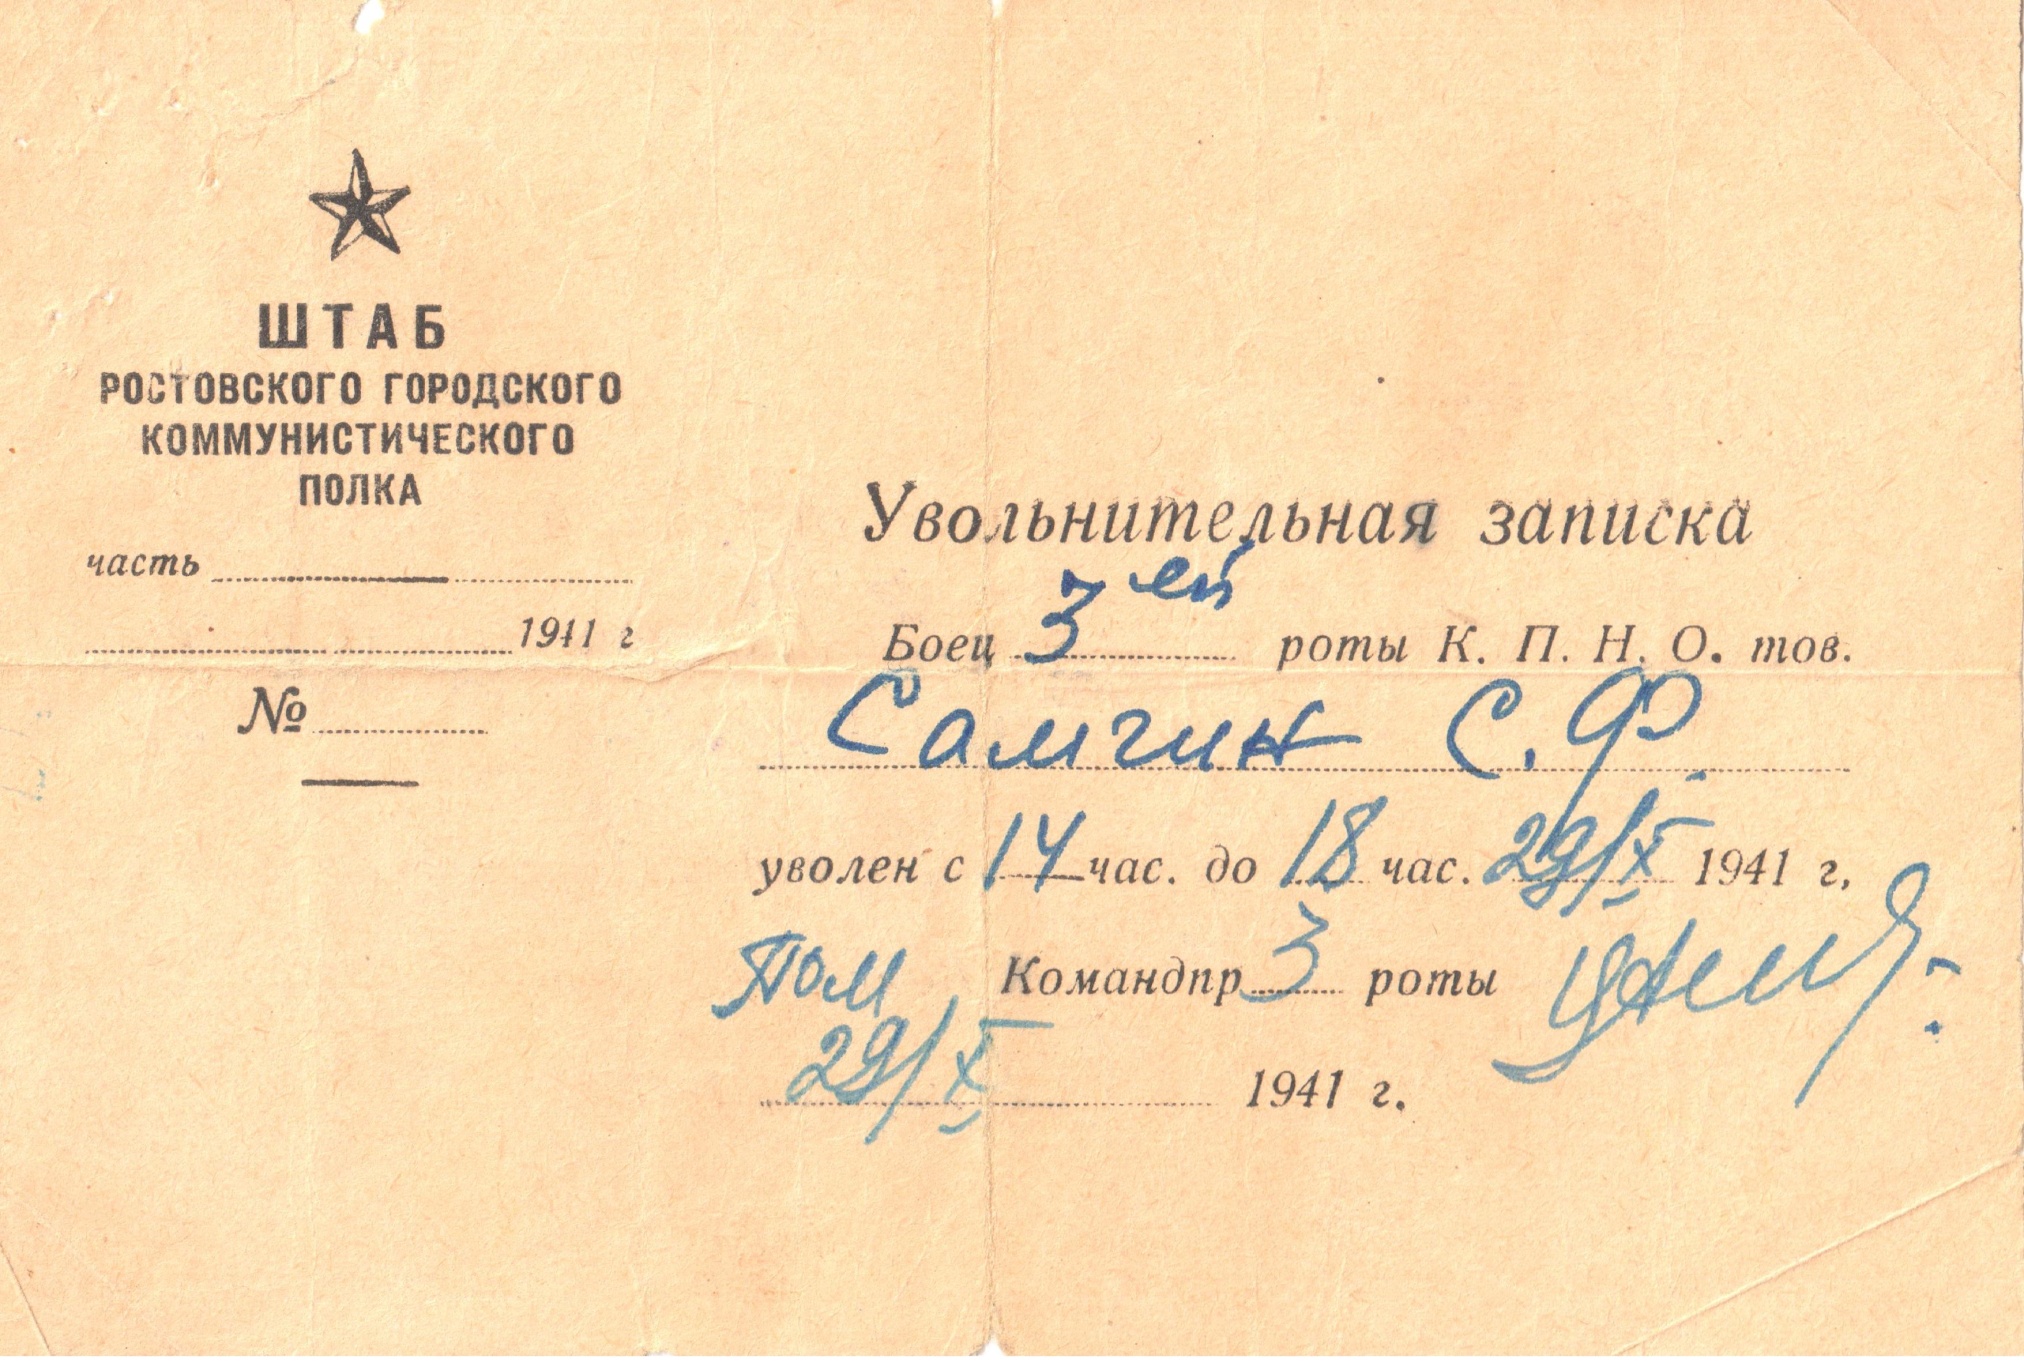 ШТАБ
РОСТОВСКОГО ГОРОДСКОГО
КОММУНИСТИЧЕСКОГО
ПОЛКА
часть
1941 г
№
Увольнительная записка
Боец 3ей роты К. П. Н. О. тов.
Самгин С. Ф.
уволен с 14 час. до 18 час. 29/X 1941 г.
Пом Командпр 3 роты
29/X 1941 г.